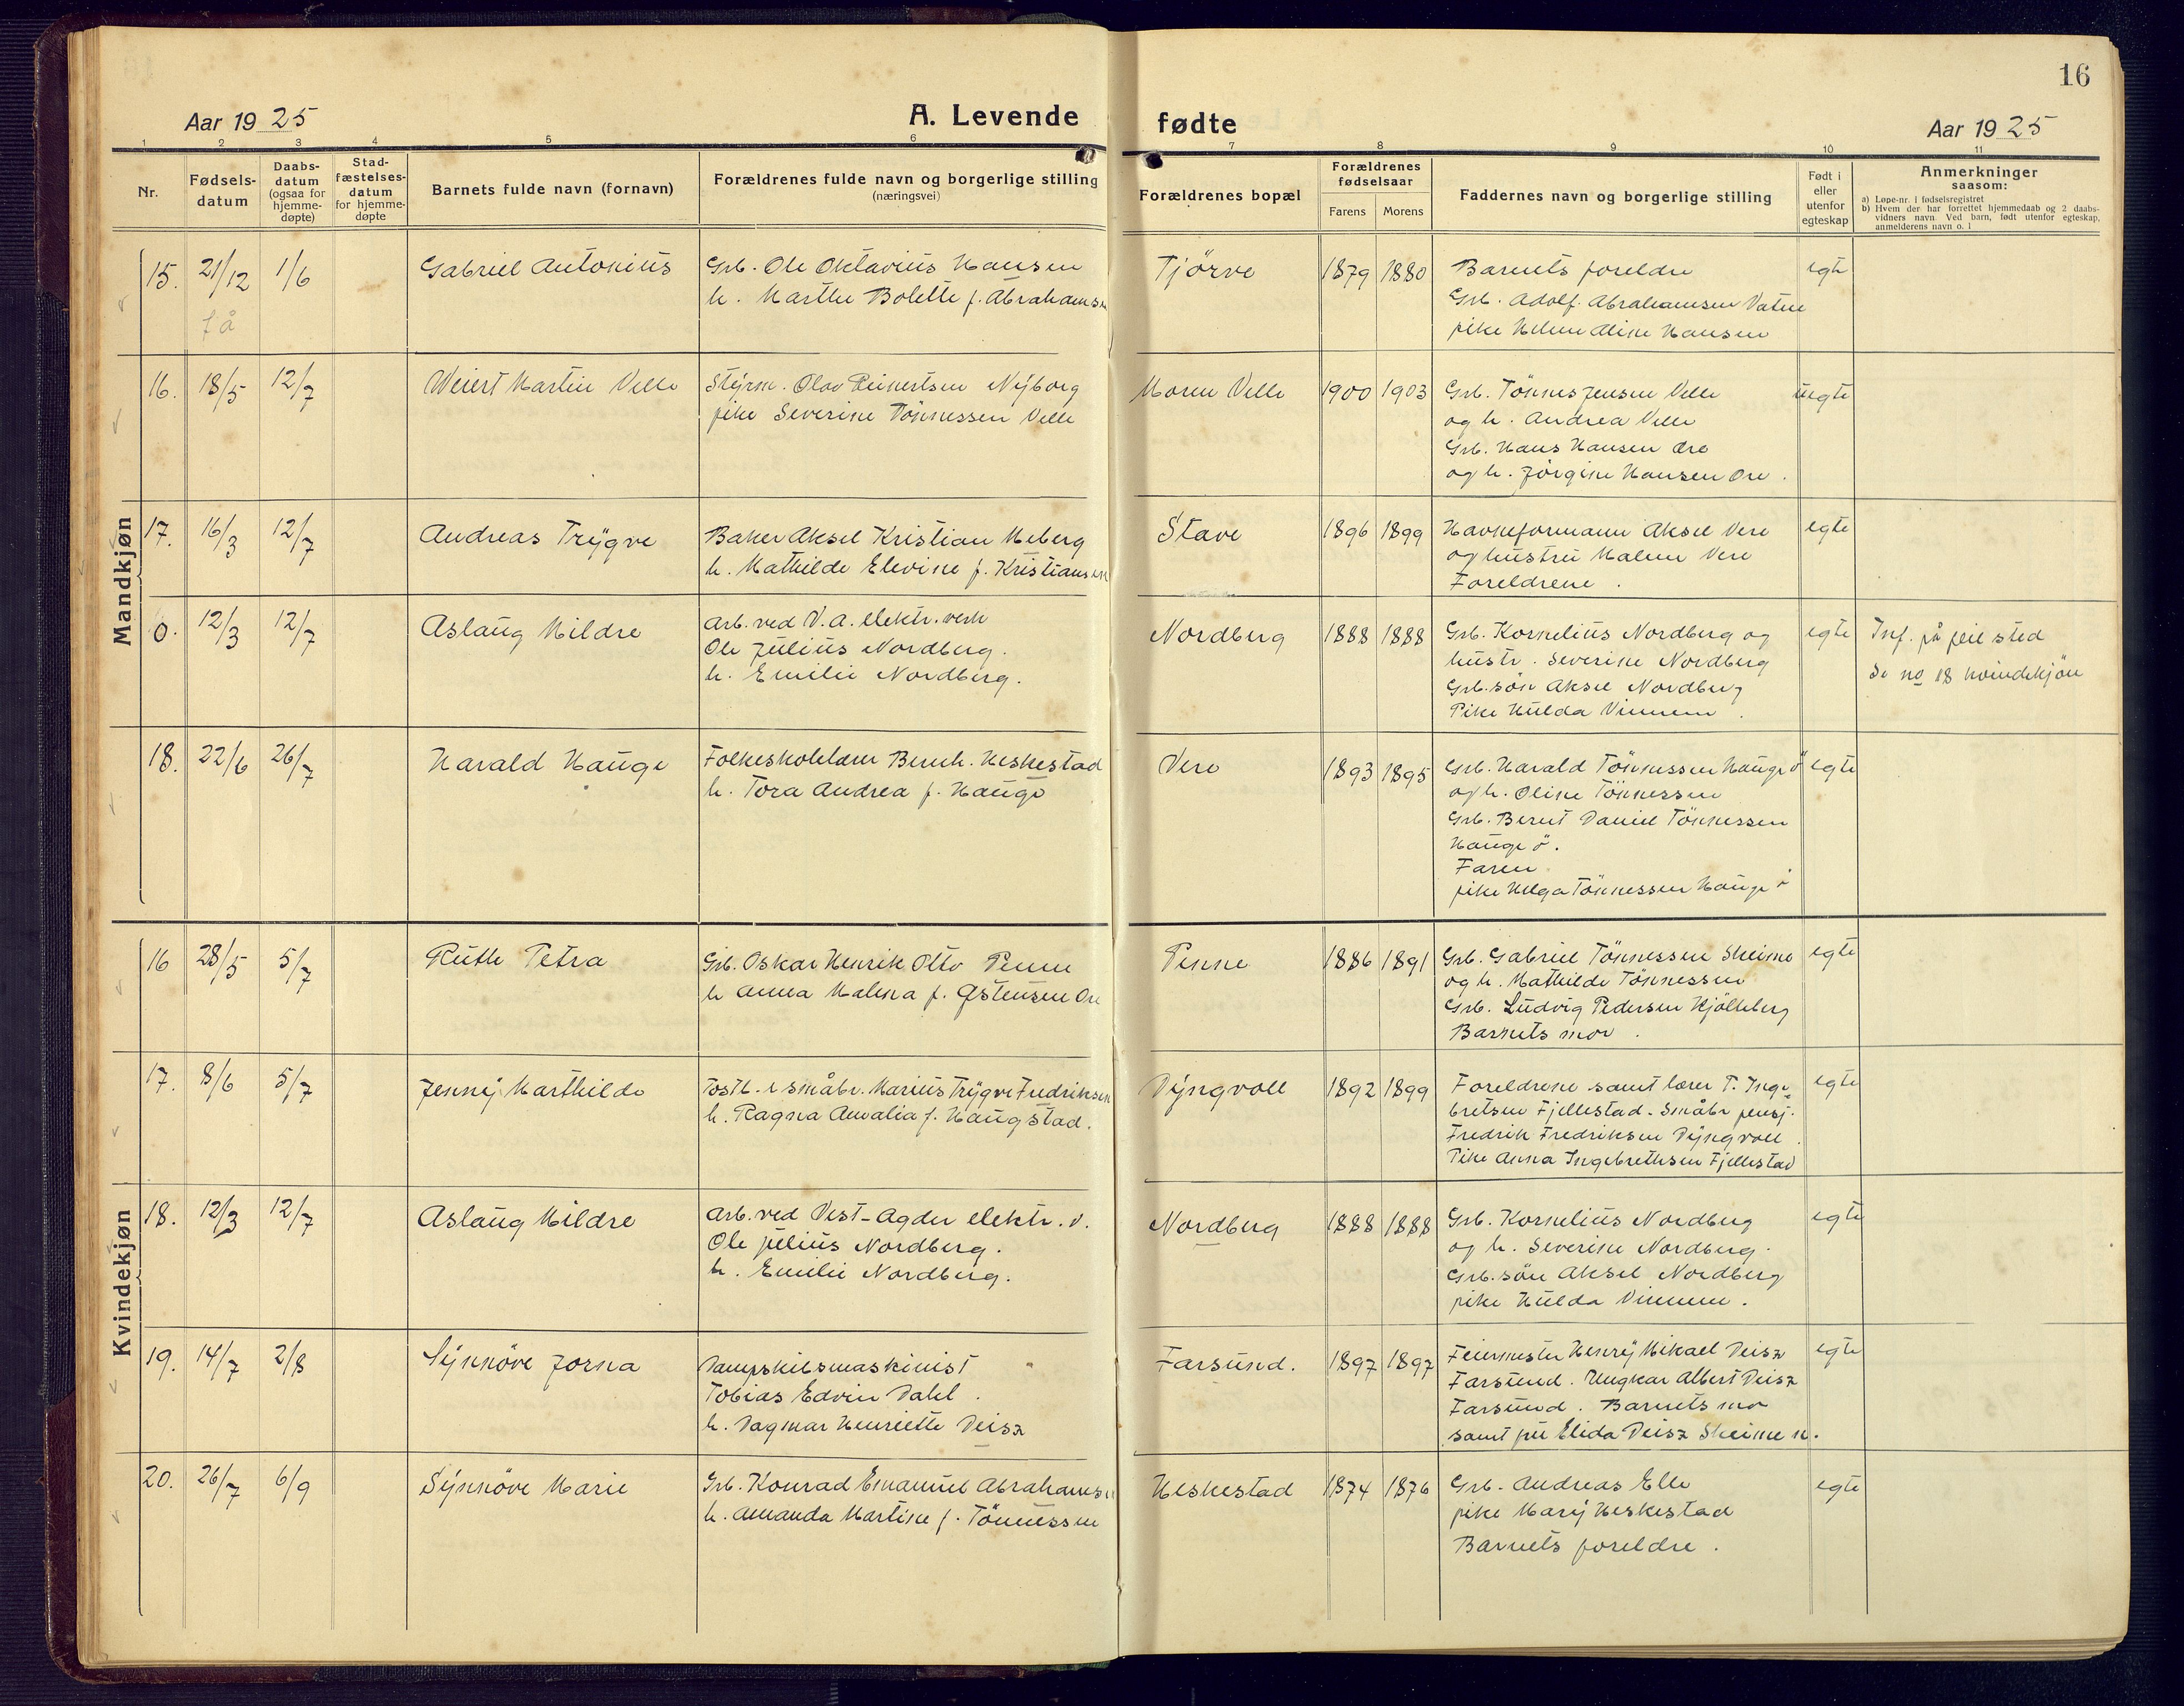 16
Aar 1925
A. Levende fødte
Aar 1925
1 2 3 4 5 6 7 8 9 10 11
Nr.
Fødsels-
datum
Daabs-
datum
(ogsaa for
hjemme-
døpte)
Stad-
fæstelses-
datum
for hjemme-
døpte
Barnets fulde navn (fornavn)
Forældrenes fulde navn og borgerlige stilling
(næringsvei)
Forældrenes bopæl
Forældrenes
fødselsaar
Farens Morens
Faddernes navn og borgerlige stilling
Født i
eller
utenfor
egteskap
Anmerkninger
saasom:
a) Løpe-nr. i fødselsregistret
b) Hvem der har forrettet hjemmedaab og 2 daabs-
vidners navn. Ved barn, født utenfor egteskap,
anmelderens navn o. l
Mandkjøn
15. 21/12 1/6 Gabriel Antonius
f å
Grb. Ole Oktavius Hansen
h. Marthe Bolette f. Abrahamsen
Tjörve 1879 1880
Barnets foreldre
Grb. Adolf Abrahamsen Vatne
pike Helene Aline Hansen
egte
16. 18/5 12/7 Weiert Martin Velle
Styrm. Olav Reinertsen Nyborg
pike Severine Tönnessen Velle
Moren Velle 1900 1903
Grb. Tönnes Jensen Velle
og h. Andrea Velle
Grb. Hans Hansen Ore
og h. Jörgine Hansen Ore.
uegte
17. 16/3 12/7 Andreas Trygve
Baker Aksel Kristian Meberg
h. Mathilde Elevine f. Kristiansen
Stave 1896 1899
Havneformann Aksel Vere
og hustru Malene Vere
Foreldrene.
egte
0. 12/3 12/7 Aslaug Mildre
Arb. ved V. A. elektr. verk
Ole Julius Nordberg.
h. Emilie Nordberg.
Nordberg 1888 1888
Grb. Kornelius Nordberg og
hustr. Severine Nordberg
Grb. sön Aksel Nordberg
Pike Hulda Vinnem.
egte
Inf. på feil sted
Se no 18 kvindekjön
18. 22/6 26/7 Harald Hauge
Folkeskolelærer Bernh. Heskestad
h. Tora Andrea f. Hauge
Vere 1893 1895
Grb. Harald Tönnessen Hauge ö
og h. Oline Tönnessen
Grb. Bernt Daniel Tönnessen
Hauge ö.
Faren
pike Helga Tönnessen Hauge ö
egte
Kvindekjøn
16 28/5 5/7 Ruth Petra
Grb. Oskar Henrik Otto Penne
h Anna Malena f. Østensen Ore
Penne 1886 1891
Grb. Gabriel Tönnessen Skeime
og h. Mathilde Tönnessen
Grb. Ludvig Pedersen Kjölleberg
Barnets mor.
egte
17. 8/6 5/7 Jenny Marthilde
Postb. & småbr. Marius Trygve Fredriksen
h. Ragna Amalia f. Haugstad.
Dyngvoll 1892 1899
Foreldrene samt lærer T. Inge-
bretsen Fjellestad. Småbr pensj.
Fredrik Fredriksen Dyngvoll.
Pike Anna Ingebrethsen Fjellestad
egte
18. 12/3 12/7 Aslaug Mildre
Arb. ved Vest-Agder elektr. v.
Ole Julius Nordberg.
h. Emilie Nordberg.
Nordberg 1888 1888
Grb. Kornelius Nordberg
og h. Severine Nordberg.
Grb. sön Aksel Nordberg
pike Hulda Vinnem.
egte
19. 14/7 2/8 Synnöve Jorna
Dampskibsmaskinist
Tobias Edvin Dahl.
h. Dagmar Henriette Deisz
Farsund. 1897 1897
Feiermester Henry Mikael Deisz
Farsund. Ungkar Albert Deisz
Farsund. Barnets mor
samt fru Elida Deisz Skeime n.
egte
20. 26/7 6/9 Synnöve Marie
Grb. Konrad Emanuel Abrahamsen
h. Amanda Martine f. Tönnessen
Heskestad 1874 1876
Grb. Andreas Elle
pike Mary Heskestad
Barnets foreldre.
egte